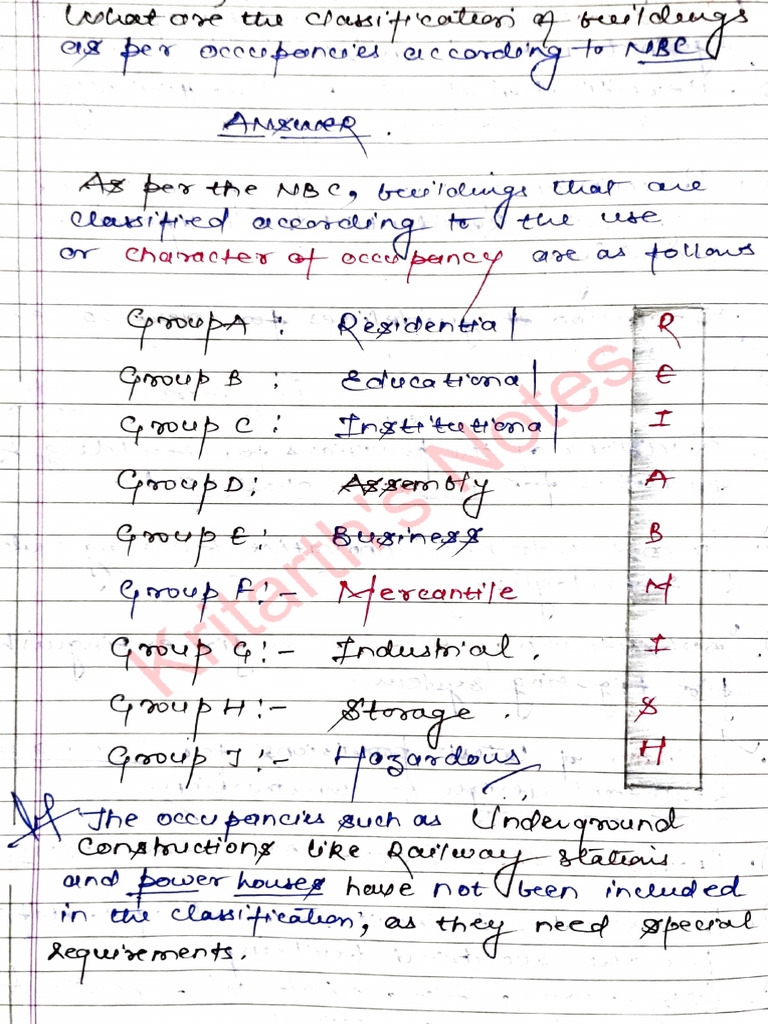 What are the classification of buildings
as per occupancies according to NBC
ANSWER.
As per the NBC, buildings that are
classified according to the use
or character of occupancy are as follows
Group A : Residential R
Group B : Educational E
Group C : Institutional I
Group D : Assembly A
Group E : Business B
Group F :- Mercantile M
Group G :- Industrial. I
Group H :- Storage. S
Group I :- Hazardous H
The occupancies such as Underground
constructions like Railway stations
and power houses have not been included
in the classification, as they need special
requirements.
Kritarth's Notes